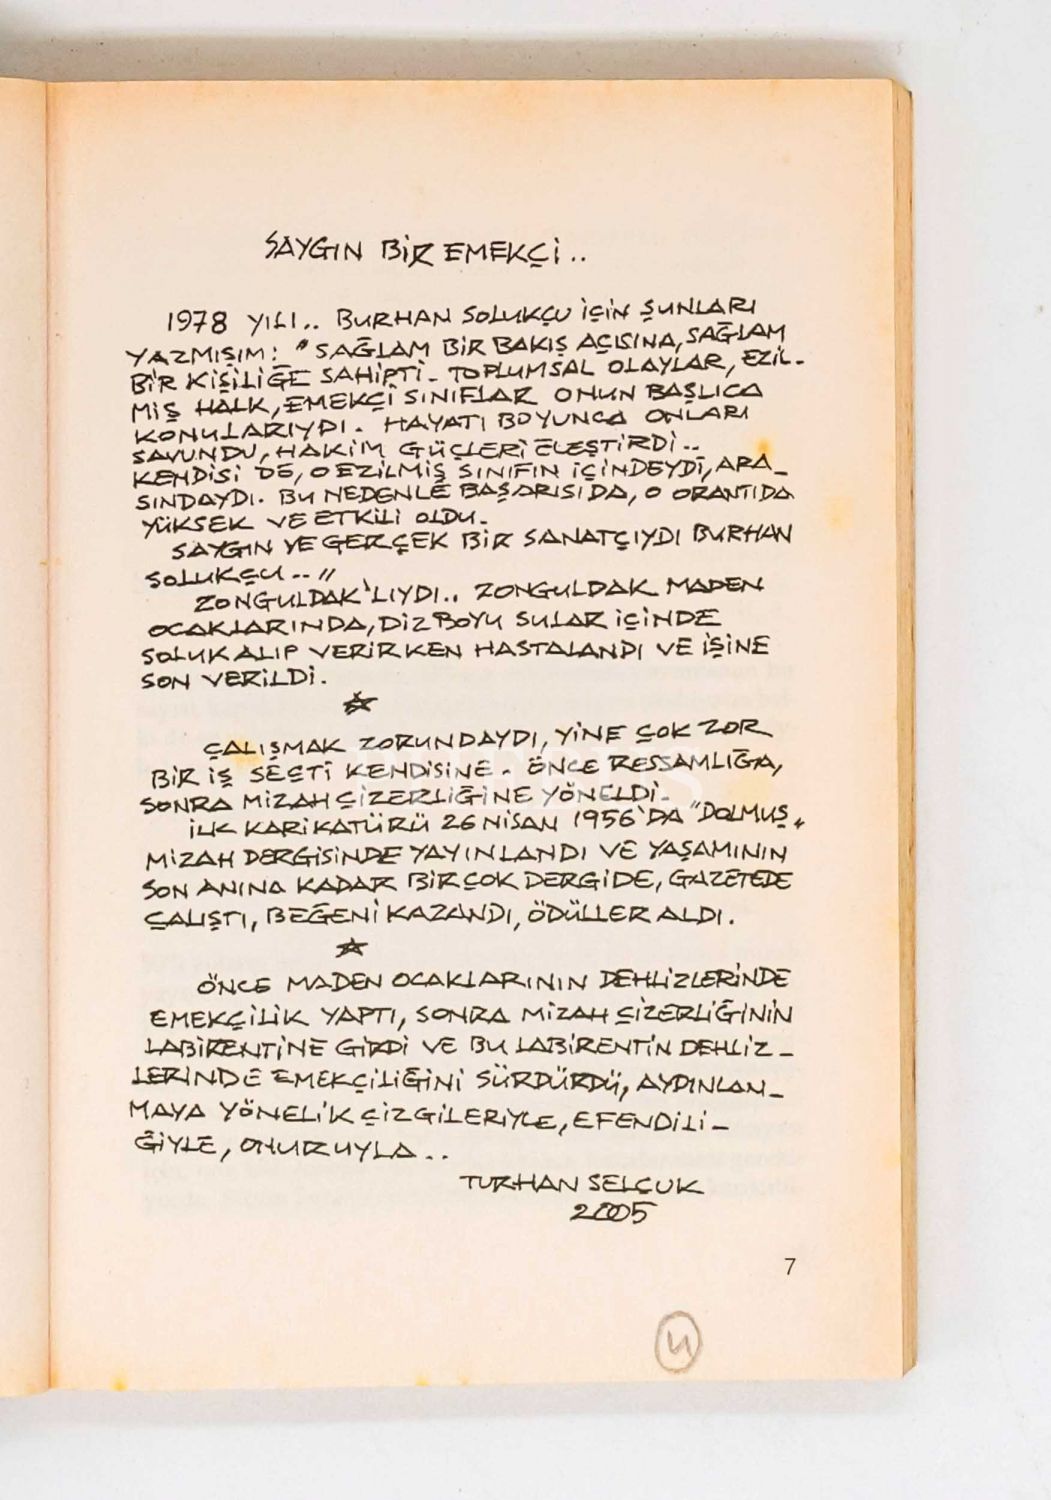 SAYGIN BİR EMEKÇİ..
1978 YILI.. BURHAN SOLUKÇU İÇİN ŞUNLARI
YAZMIŞIM: "SAĞLAM BİR BAKIŞ AÇISINA, SAĞLAM
BİR KİŞİLİĞE SAHİPTİ. TOPLUMSAL OLAYLAR, EZİL-
MİŞ HALK, EMEKÇİ SINIFLAR ONUN BAŞLICA
KONULARIYDI. HAYATI BOYUNCA ONLARI
SAVUNDU, HAKİM GÜÇLERİ ELEŞTİRDİ..
KENDİSİ DE, O EZİLMİŞ SINIFIN İÇİNDEYDİ, ARA-
SINDAYDI. BU NEDENLE BAŞARISI DA, O ORANTIDA
YÜKSEK VE ETKİLİ OLDU.
SAYGIN VE GERÇEK BİR SANATÇIYDI BURHAN
SOLUKÇU.."
ZONGULDAK'LIYDI.. ZONGULDAK MADEN
OCAKLARINDA, DİZ BOYU SULAR İÇİNDE
SOLUK ALIP VERİRKEN HASTALANDI VE İŞİNE
SON VERİLDİ.
☆
ÇALIŞMAK ZORUNDAYDI, YİNE ÇOK ZOR
BİR İŞ SEÇTİ KENDİSİNE. ÖNCE RESSAMLIĞA,
SONRA MİZAH ÇİZERLİĞİNE YÖNELDİ.
İLK KARİKATÜRÜ 26 NİSAN 1956'DA "DOLMUŞ"
MİZAH DERGİSİNDE YAYINLANDI VE YAŞAMININ
SON ANINA KADAR BİRÇOK DERGİDE, GAZETEDE
ÇALIŞTI, BEĞENİ KAZANDI, ÖDÜLLER ALDI.
☆
ÖNCE MADEN OCAKLARININ DEHLİZLERİNDE
EMEKÇİLİK YAPTI, SONRA MİZAH ÇİZERLİĞİNİN
LABİRENTİNE GİRDİ VE BU LABİRENTİN DEHLİZ-
LERİNDE EMEKÇİLİĞİNİ SÜRDÜRDÜ, AYDINLAN-
MAYA YÖNELİK ÇİZGİLERİYLE, EFENDİLİ-
ĞİYLE, ONURUYLA..
TURHAN SELÇUK
2005
7